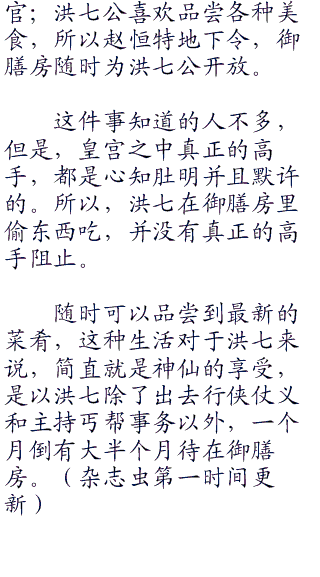 官；洪七公喜欢品尝各种美
食，所以赵恒特地下令，御
膳房随时为洪七公开放。
这件事知道的人不多，
但是，皇宫之中真正的高
手，都是心知肚明并且默许
的。所以，洪七在御膳房里
偷东西吃，并没有真正的高
手阻止。
随时可以品尝到最新的
菜肴，这种生活对于洪七来
说，简直就是神仙的享受，
是以洪七除了出去行侠仗义
和主持丐帮事务以外，一个
月倒有大半个月待在御膳
房。（杂志虫第一时间更
新）